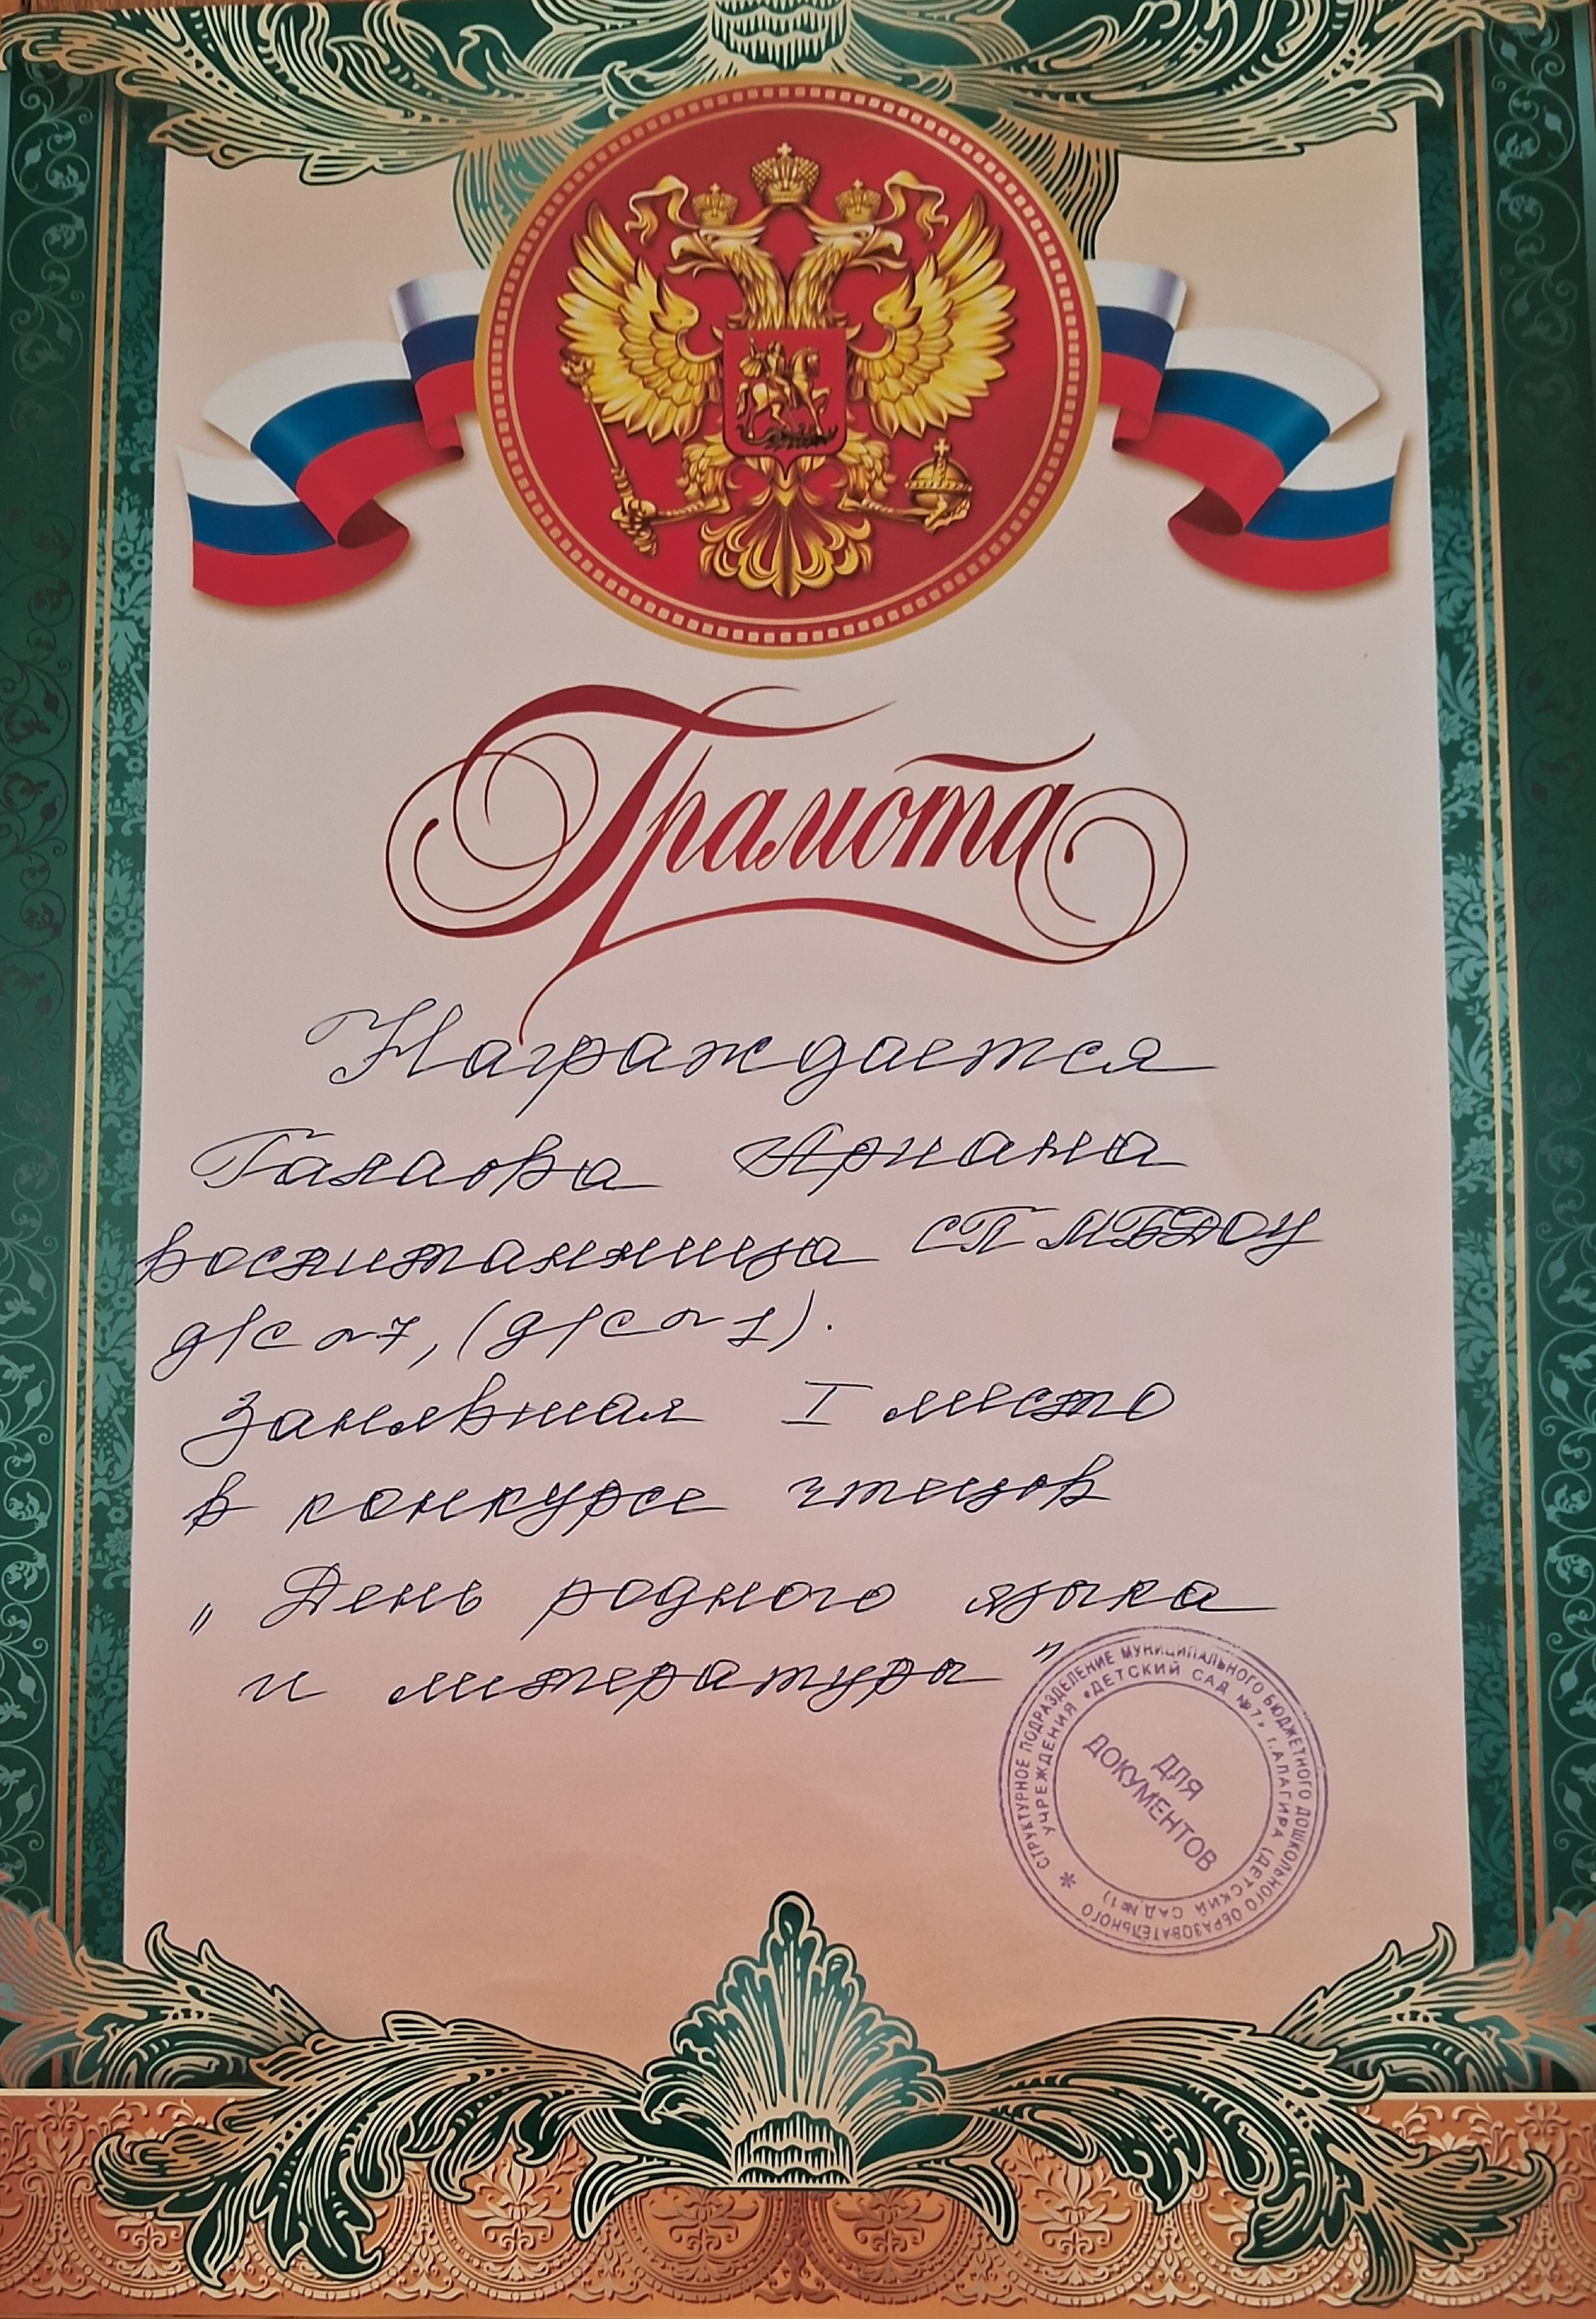 Грамота
Награждается
Галаова Ариана
воспитанница СП МБДОУ
д/с №7, (д/с №1).
Занявшая I место
в конкурсе чтецов
„День родного языка
и литературы"
СТРУКТУРНОЕ ПОДРАЗДЕЛЕНИЕ МУНИЦИПАЛЬНОГО БЮДЖЕТНОГО ДОШКОЛЬНОГО ОБРАЗОВАТЕЛЬНОГО
УЧРЕЖДЕНИЯ «ДЕТСКИЙ САД №7» г.АЛАГИРА (ДЕТСКИЙ САД №1)
ДЛЯ
ДОКУМЕНТОВ